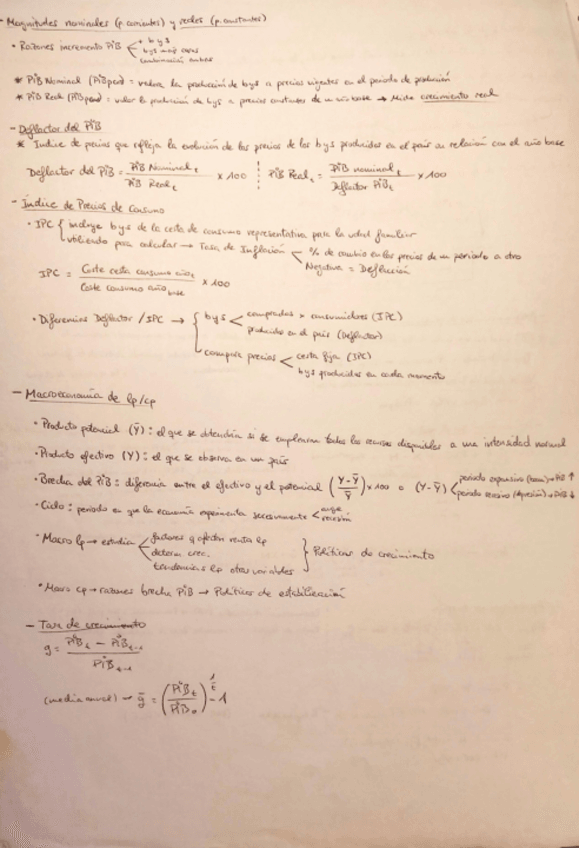 - Magnitudes nominales (p. corrientes) y reales (p. constantes)
• Razones incremento PiB
+ b y s
b y s más caros
combinación ambas
* PiB Nominal (PiBpm) = valora la producción de b y s a precios vigentes en el periodo de producción
* PiB Real (PiBpm) = valor la producción de b y s a precios constantes de un año base → Mide crecimiento real
- Deflactor del PiB
* Índice de precios que refleja la evolución de los precios de los b y s producidos en el país en relación con el año base
Deflactor del PiB = PiB Nominal t / PiB Real t × 100 PiB Real t = PiB nominal t / Deflactor PiB t × 100
- Índice de Precios de Consumo
• IPC { incluye b y s de la cesta de consumo representativa para la udad familiar
utilizado para calcular → Tasa de Inflación < % de cambio en los precios de un periodo a otro
Negativa = Deflación
IPC = Coste cesta consumo año t / Coste consumo año base × 100
• Diferencias Deflactor / IPC → { b y s < comprados x consumidores (IPC)
producidos en el país (Deflactor)
compara precios < cesta fija (IPC)
b y s producidos en cada momento
- Macroeconomía de lp/cp
• Producto potencial (Ȳ): el que se obtendría si se emplearan todos los recursos disponibles a una intensidad normal
• Producto efectivo (Y): el que se observa en un país
• Brecha del PiB: diferencia entre el efectivo y el potencial ((Y-Ȳ)/Ȳ) × 100 o (Y-Ȳ) < periodo expansivo (boom) → PiB ↑
periodo recesivo (depresión) → PiB ↓
• Ciclo: periodo en que la economía experimenta sucesivamente < auge
recesión
• Macro lp → estudia < factores q afectan renta lp
determ. crec.
tendencias lp otras variables
} Políticas de crecimiento
• Macro cp → razones brecha PiB → Políticas de estabilización
- Tasa de crecimiento
g = (PiB t - PiB t-1) / PiB t-1
(media anual) → ḡ = (PiB t / PiB 0)^(1/t) - 1